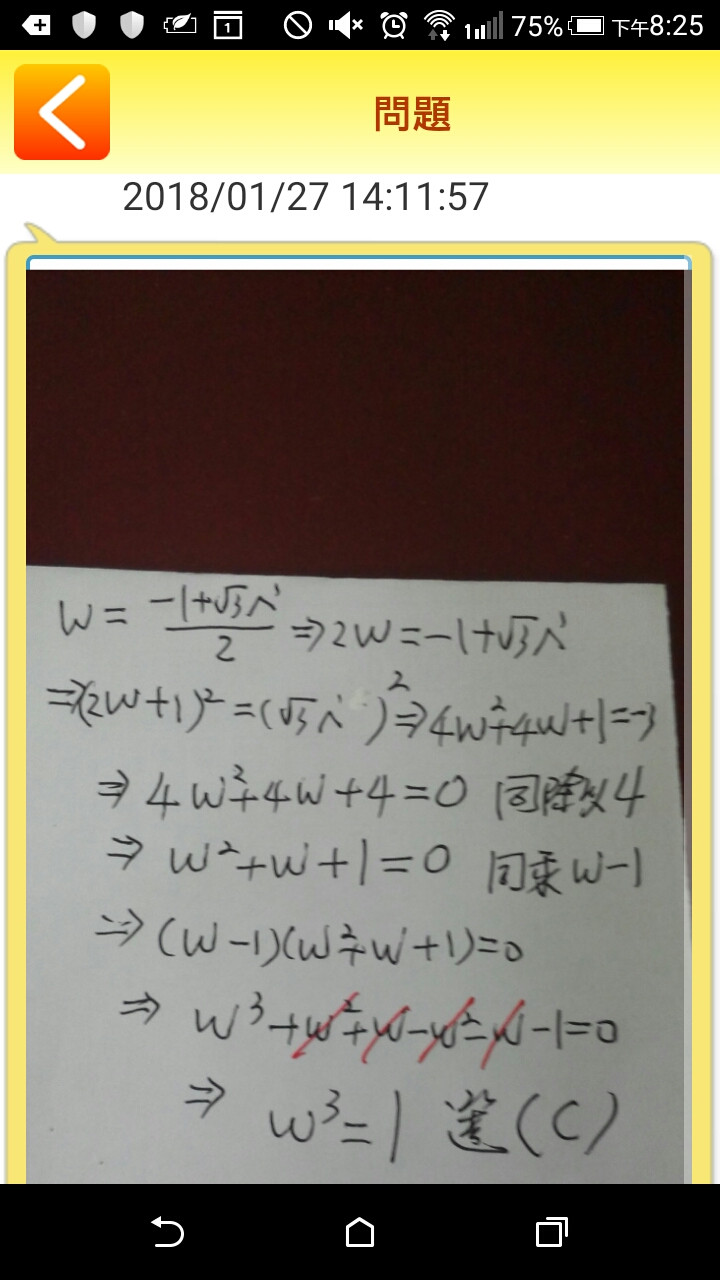 75% 下午8:25
問題
2018/01/27 14:11:57
W = (-1+√3i)/2 ⇒ 2W = -1+√3i
⇒ (2W+1)² = (√3i)² ⇒ 4W²+4W+1=-3
⇒ 4W²+4W+4=0 同除以4
⇒ W²+W+1=0 同乘W-1
⇒ (W-1)(W²+W+1)=0
⇒ W³+W²+W-W²-W-1=0
⇒ W³=1 選(C)